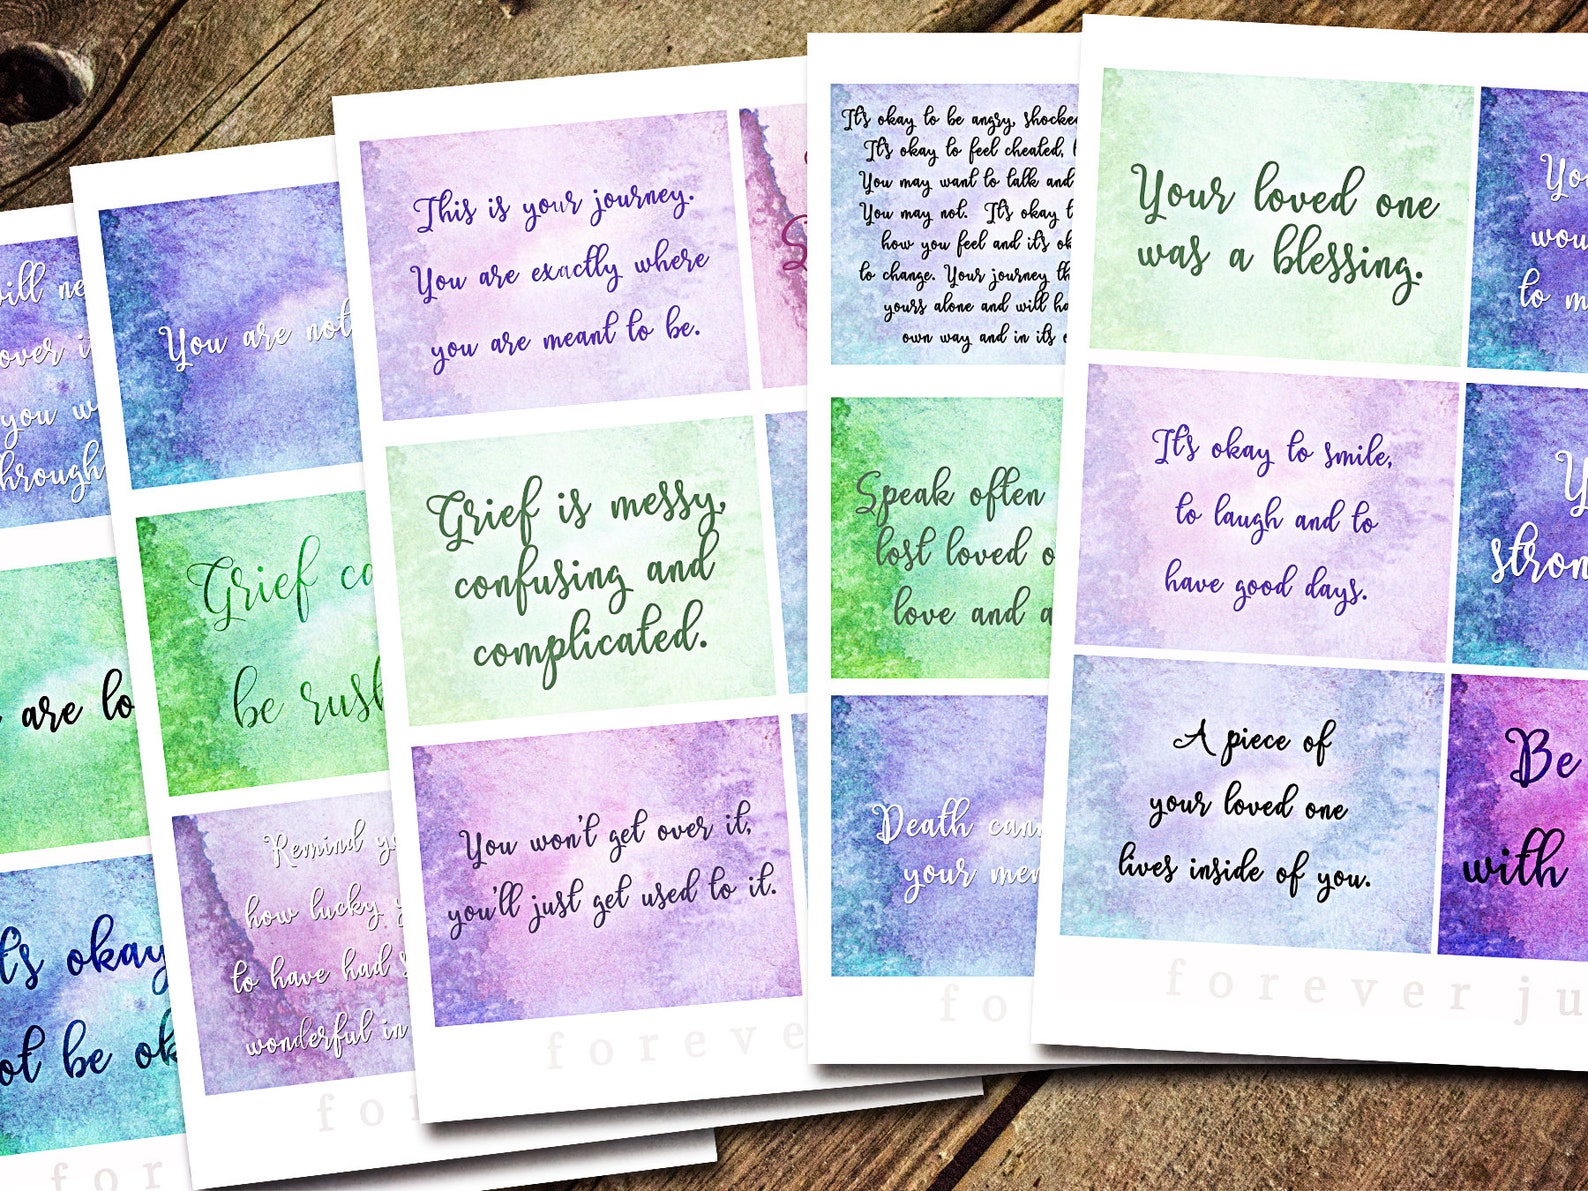 will
over
you
through
are
It's okay
not be
You are not
Grief
be
Remind
how lucky
to have had
wonderful in
This is your journey.
You are exactly where
you are meant to be.
Grief is messy,
confusing and
complicated.
You won't get over it,
you'll just get used to it.
It's okay to be angry, shocked
It's okay to feel cheated,
You may want to talk and
You may not. It's okay
how you feel and it's
to change. Your journey
yours alone and will
own way and in its
Speak often
lost loved
love and
Death
your
Your loved one
was a blessing.
It's okay to smile,
to laugh and to
have good days.
A piece of
your loved one
lives inside of you.
to
Be
with
forever